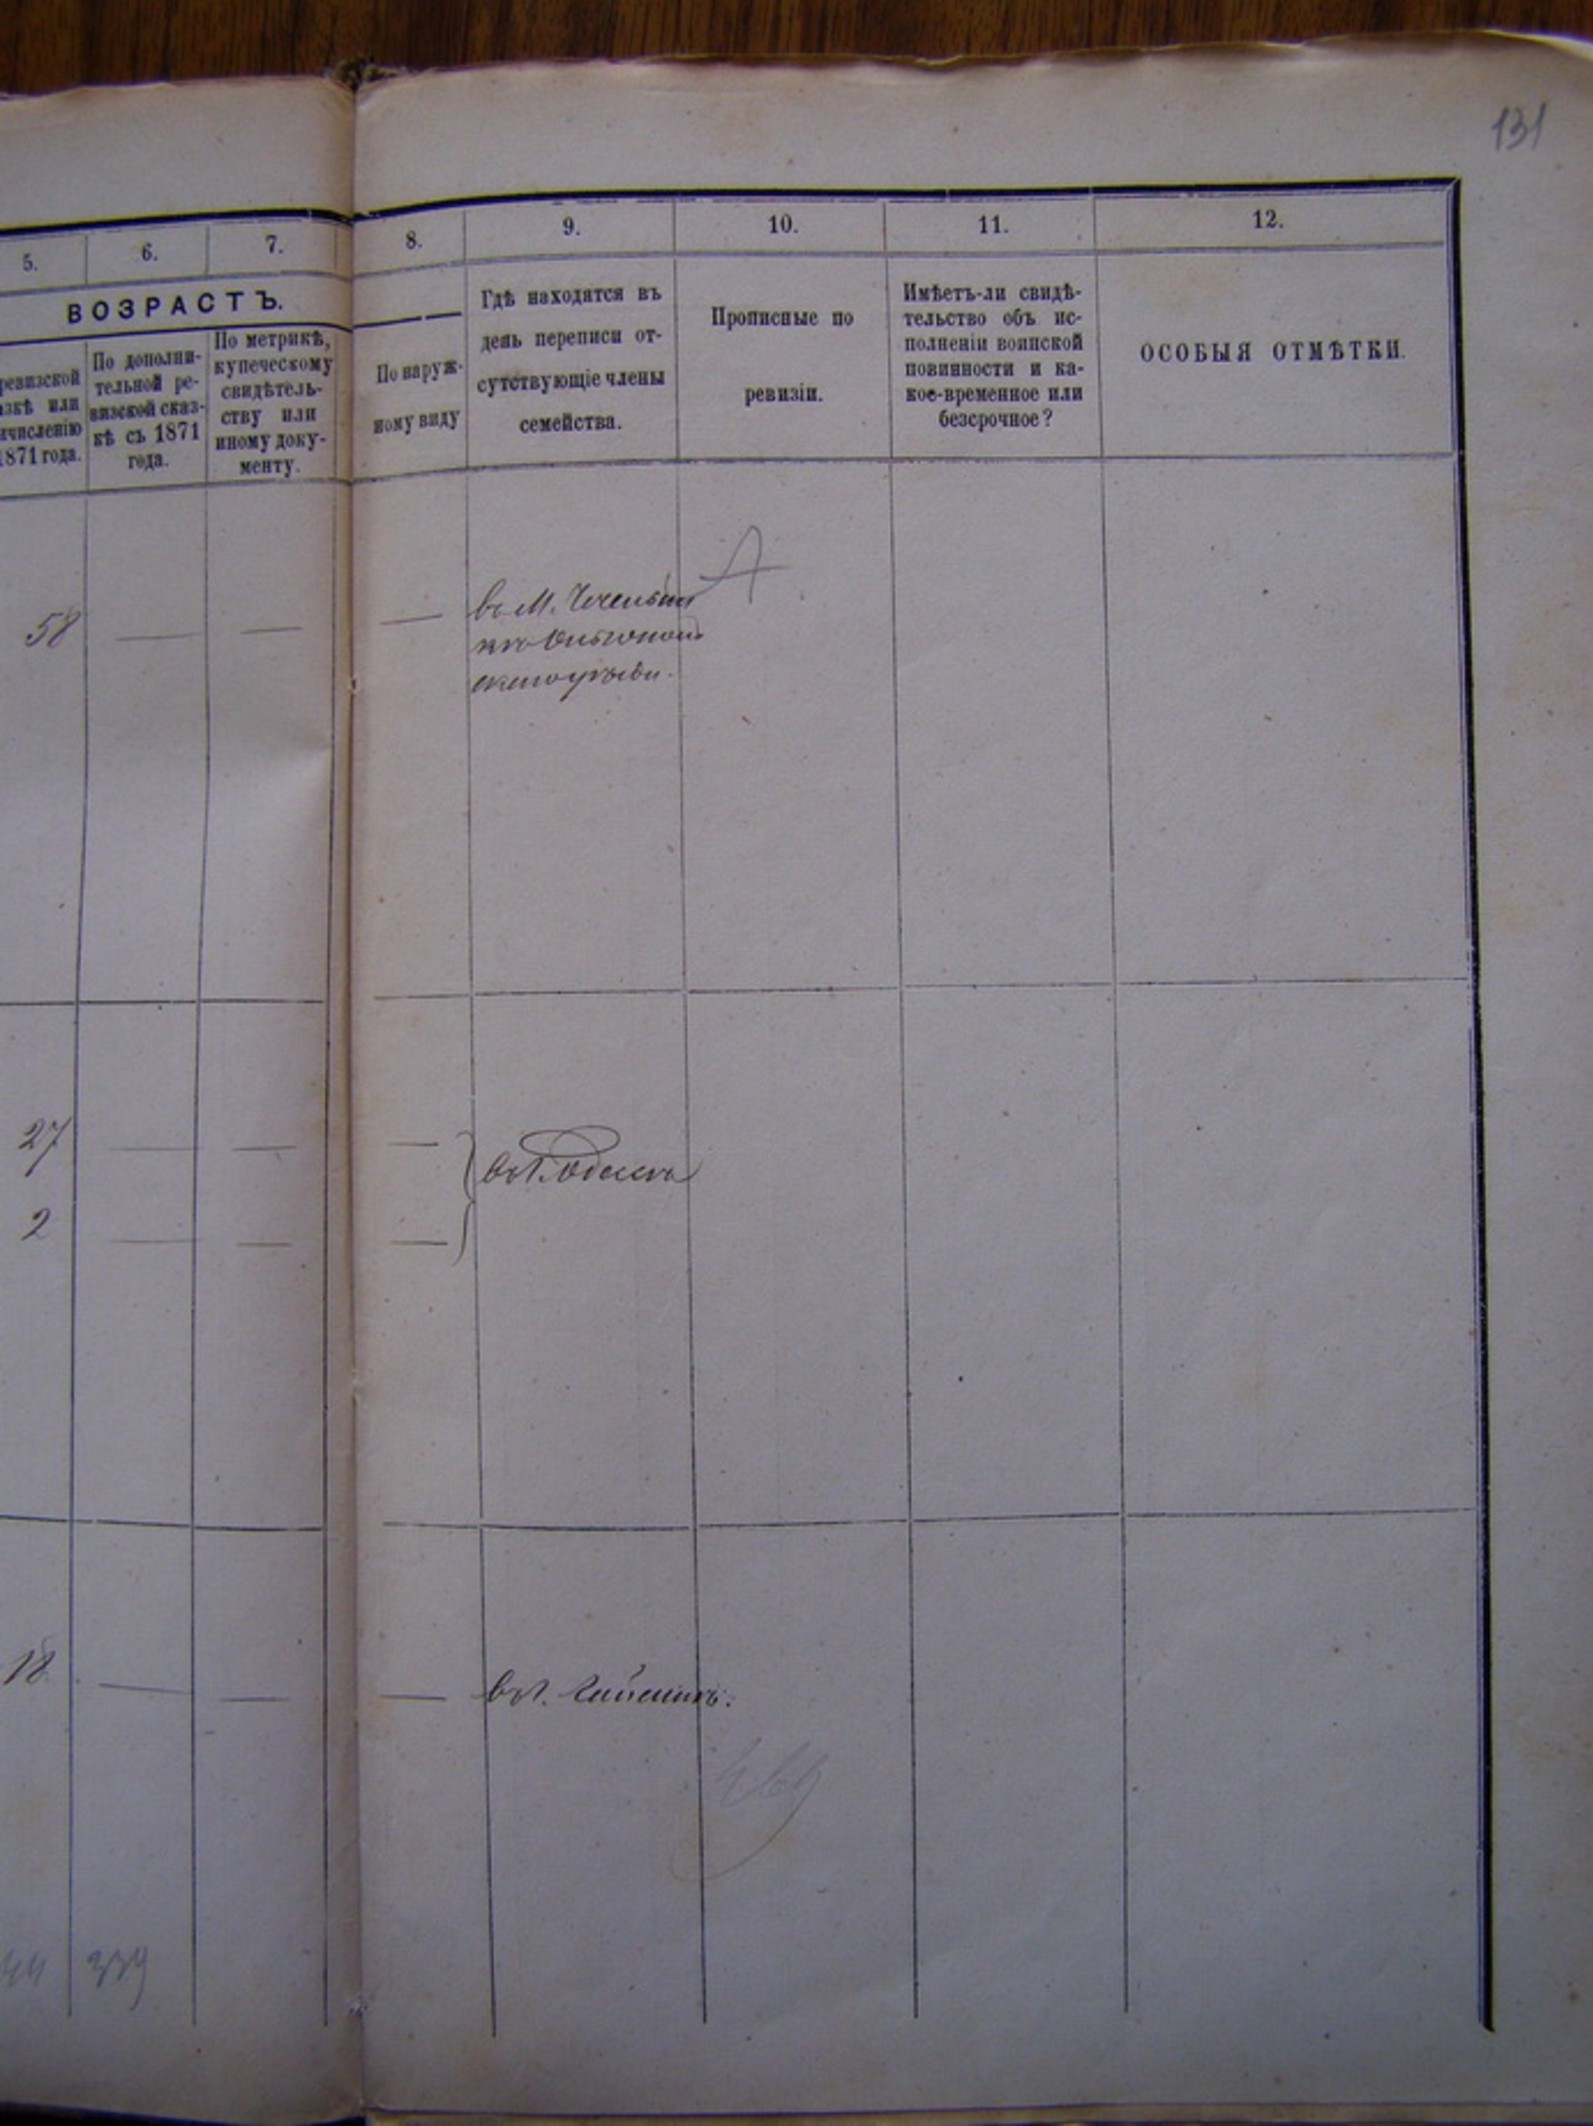 131
5.
6.
7.
8.
9.
10.
11.
12.
ВОЗРАСТЪ.
ревизской
азкѣ или
ичисленію
1871 года.
По дополни-
тельной ре-
визской сказ-
кѣ съ 1871
года.
По метрикѣ,
купеческому
свидѣтель-
ству или
иному доку-
менту.
По наруж-
ному виду
Гдѣ находятся въ
день переписи от-
сутствующіе члены
семейства.
Прописные по
ревизіи.
Имѣетъ-ли свидѣ-
тельство объ ис-
полненіи воинской
повинности и ка-
кое-временное или
безсрочное?
ОСОБЫЯ ОТМѢТКИ.
58 — — — въ М.
27 — — —
въ г. Одессѣ
2 — — —
18 — — — въ г. Гайсинѣ.
44 339